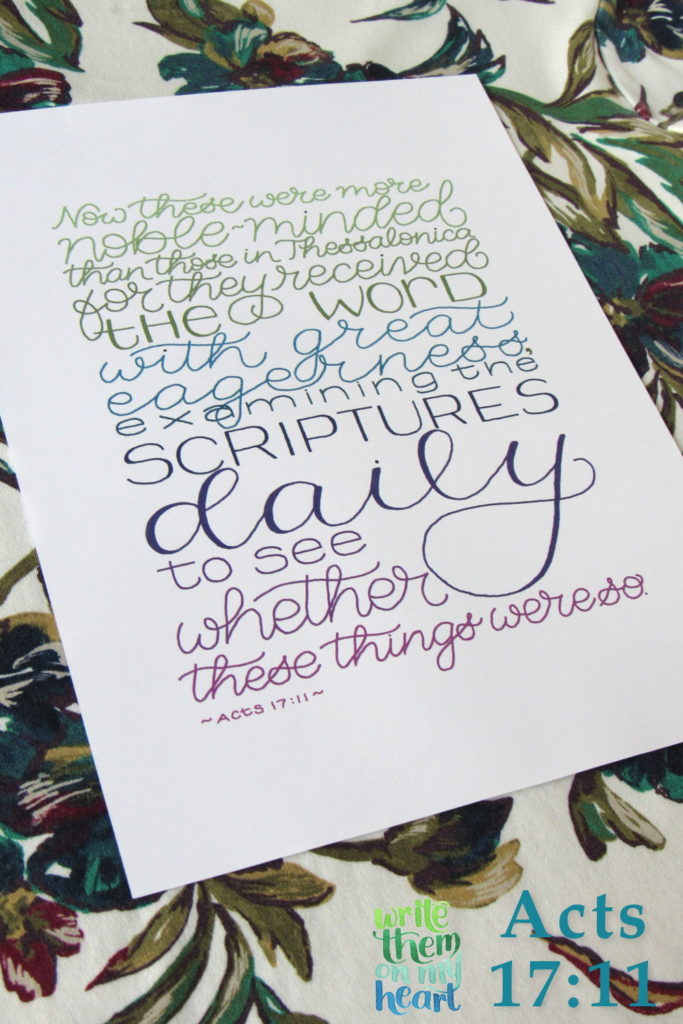 Now these were more
noble-minded
than those in Thessalonica
for they received
THE WORD
with great
eagerness,
examining the
SCRIPTURES
daily
to see
whether
these things were so.
~ACTS 17:11~
write
them
on my
heart
Acts
17:11